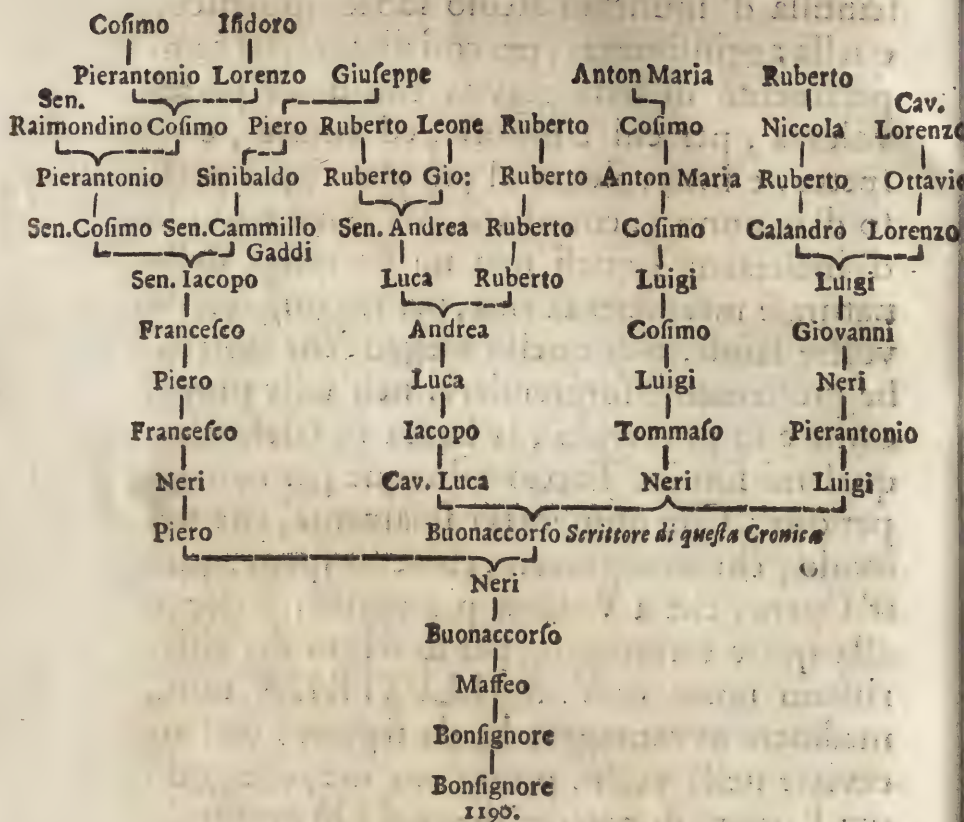 Coſimo Iſidoro
Pierantonio Lorenzo Giuſeppe Anton Maria Ruberto
Sen. Cav.
Raimondino Coſimo Piero Ruberto Leone Ruberto Coſimo Niccola Lorenzo
Pierantonio Sinibaldo Ruberto Gio: Ruberto Anton Maria Ruberto Ottavio
Sen. Coſimo Sen. Cammillo Sen. Andrea Ruberto Coſimo Calandro Lorenzo
Gaddi
Sen. Iacopo Luca Ruberto Luigi Luigi
Franceſco Andrea Coſimo Giovanni
Piero Luca Luigi Neri
Franceſco Iacopo Tommaſo Pierantonio
Neri Cav. Luca Neri Luigi
Piero Buonaccorſo Scrittore di queſta Cronica
Neri
Buonaccorſo
Maffeo
Bonſignore
Bonſignore
1190.